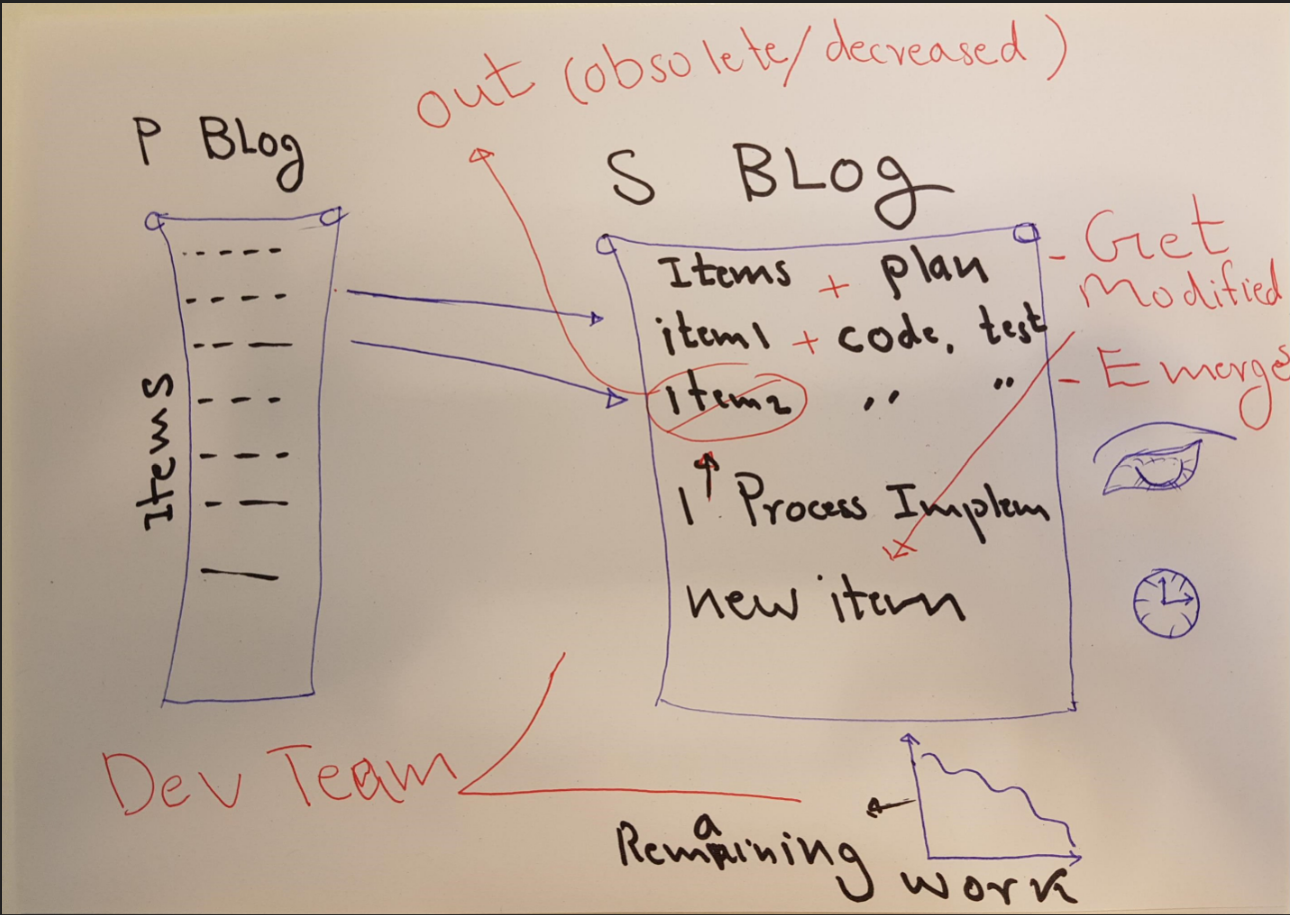 out (obsolete/decreased)
P BLog
S BLog
Items
Items + plan
item1 + code, test
item2 〃 〃
1 Process Implem
new item
- Get
Modified
- Emerge
Dev Team
Remaining
work